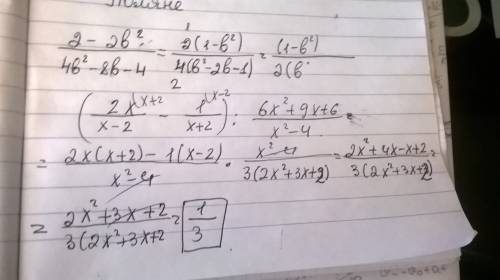 Поляне
(2 - 2b²)/(4b² - 8b - 4) = 2(1-b²)/4(b²-2b-1) = (1-b²)/2(b
1
2
(2x\x+2/(x-2) - 1\x-2/(x+2)) : (6x²+9x+6)/(x²-4) =
= (2x(x+2) - 1(x-2))/(x²-4) · (x²-4)/3(2x²+3x+2) = (2x²+4x-x+2)/3(2x²+3x+2) =
= (2x²+3x+2)/(3(2x²+3x+2) = 1/3